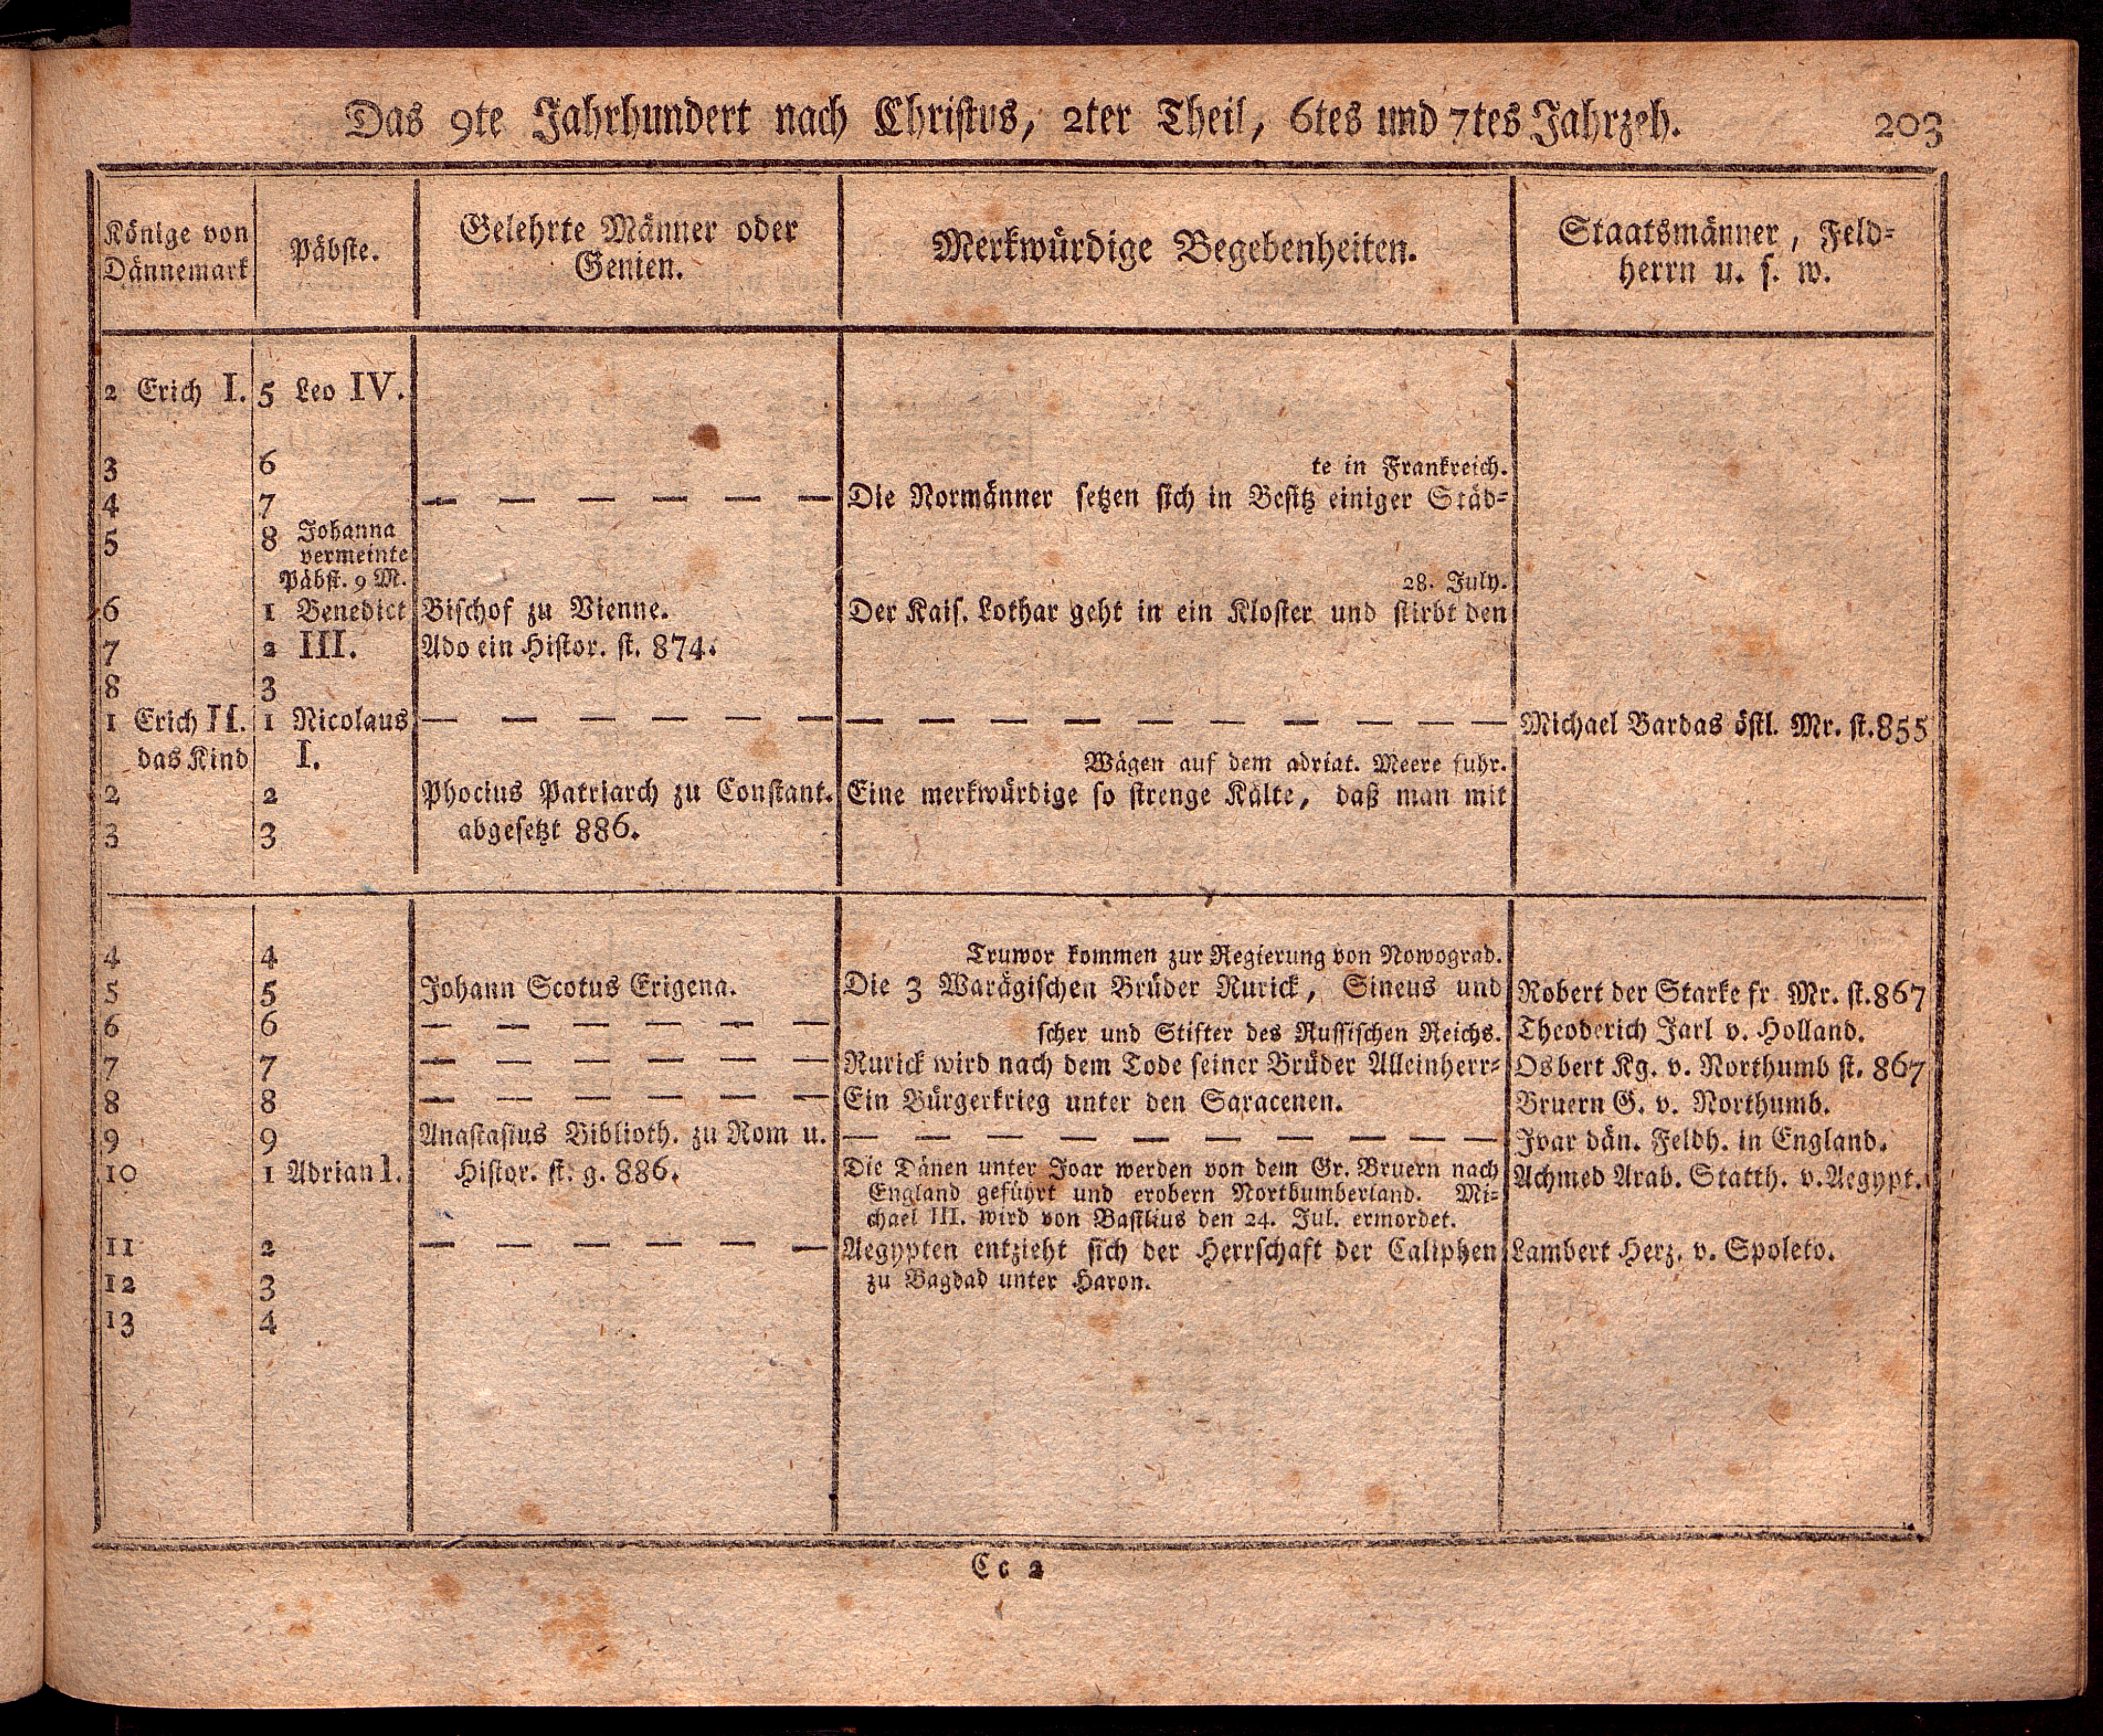 Das 9te Jahrhundert nach Christus, 2ter Theil, 6tes und 7tes Jahrzeh. 203
Könige von Dännemark
Päbste.
Gelehrte Männer oder Genien.
Merkwürdige Begebenheiten.
Staatsmänner, Feld-
herrn u. s. w.
2 Erich I. 5 Leo IV.
3 6 te in Frankreich.
4 7 — — — — — — Die Normänner setzen sich in Besitz einiger Städ-
5 8 Johanna
vermeinte
Päbst. 9 M. 28. July.
6 1 Benedict Bischof zu Vienne. Der Kais. Lothar geht in ein Kloster und stirbt den
7 2 III. Ado ein Histor. st. 874.
8 3
1 Erich II. 1 Nicolaus — — — — — — — — — — — — — — — Michael Bardas östl. Mr. st. 855
das Kind I. Wägen auf dem adriat. Meere fuhr.
2 2 Phocius Patriarch zu Constant. Eine merkwürdige so strenge Kälte, daß man mit
3 3 abgesetzt 886.
4 4 Truwor kommen zur Regierung von Nowograd.
5 5 Johann Scotus Erigena. Die 3 Warägischen Brüder Rurick, Sineus und Robert der Starke fr. Mr. st. 867
6 6 — — — — — — scher und Stifter des Russischen Reichs. Theoderich Jarl v. Holland.
7 7 — — — — — — Rurick wird nach dem Tode seiner Brüder Alleinherr- Osbert Kg. v. Northumb st. 867
8 8 — — — — — — Ein Bürgerkrieg unter den Saracenen. Bruern G. v. Northumb.
9 9 Anastasius Biblioth. zu Rom u. — — — — — — — — — Ivar dän. Feldh. in England.
10 1 Adrian I. Histor. st. g. 886. Die Dänen unter Joar werden von dem Gr. Bruern nach Achmed Arab. Statth. v. Aegypt.
England geführt und erobern Northumberland. Mi-
chael III. wird von Basilius den 24. Jul. ermordet.
11 2 — — — — — — Aegypten entzieht sich der Herrschaft der Caliphen Lambert Herz. v. Spoleto.
12 3 zu Bagdad unter Haron.
13 4
Cc 2